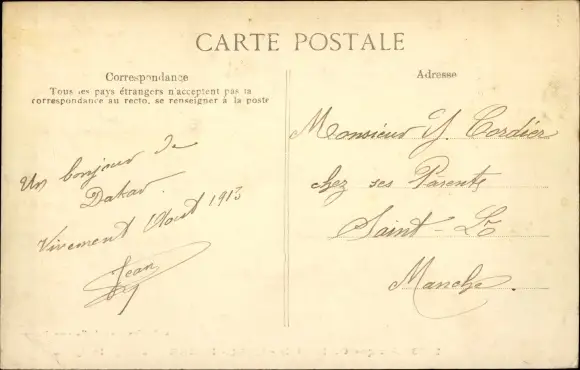 CARTE POSTALE
Correspondance
Tous les pays étrangers n'acceptent pas la
correspondance au recto, se renseigner à la poste
Un bonjour de
Dakar.
Vivement Août 1913
Jean
Adresse
Monsieur Y. Cordier
chez ses Parents
Saint-Lô
Manche